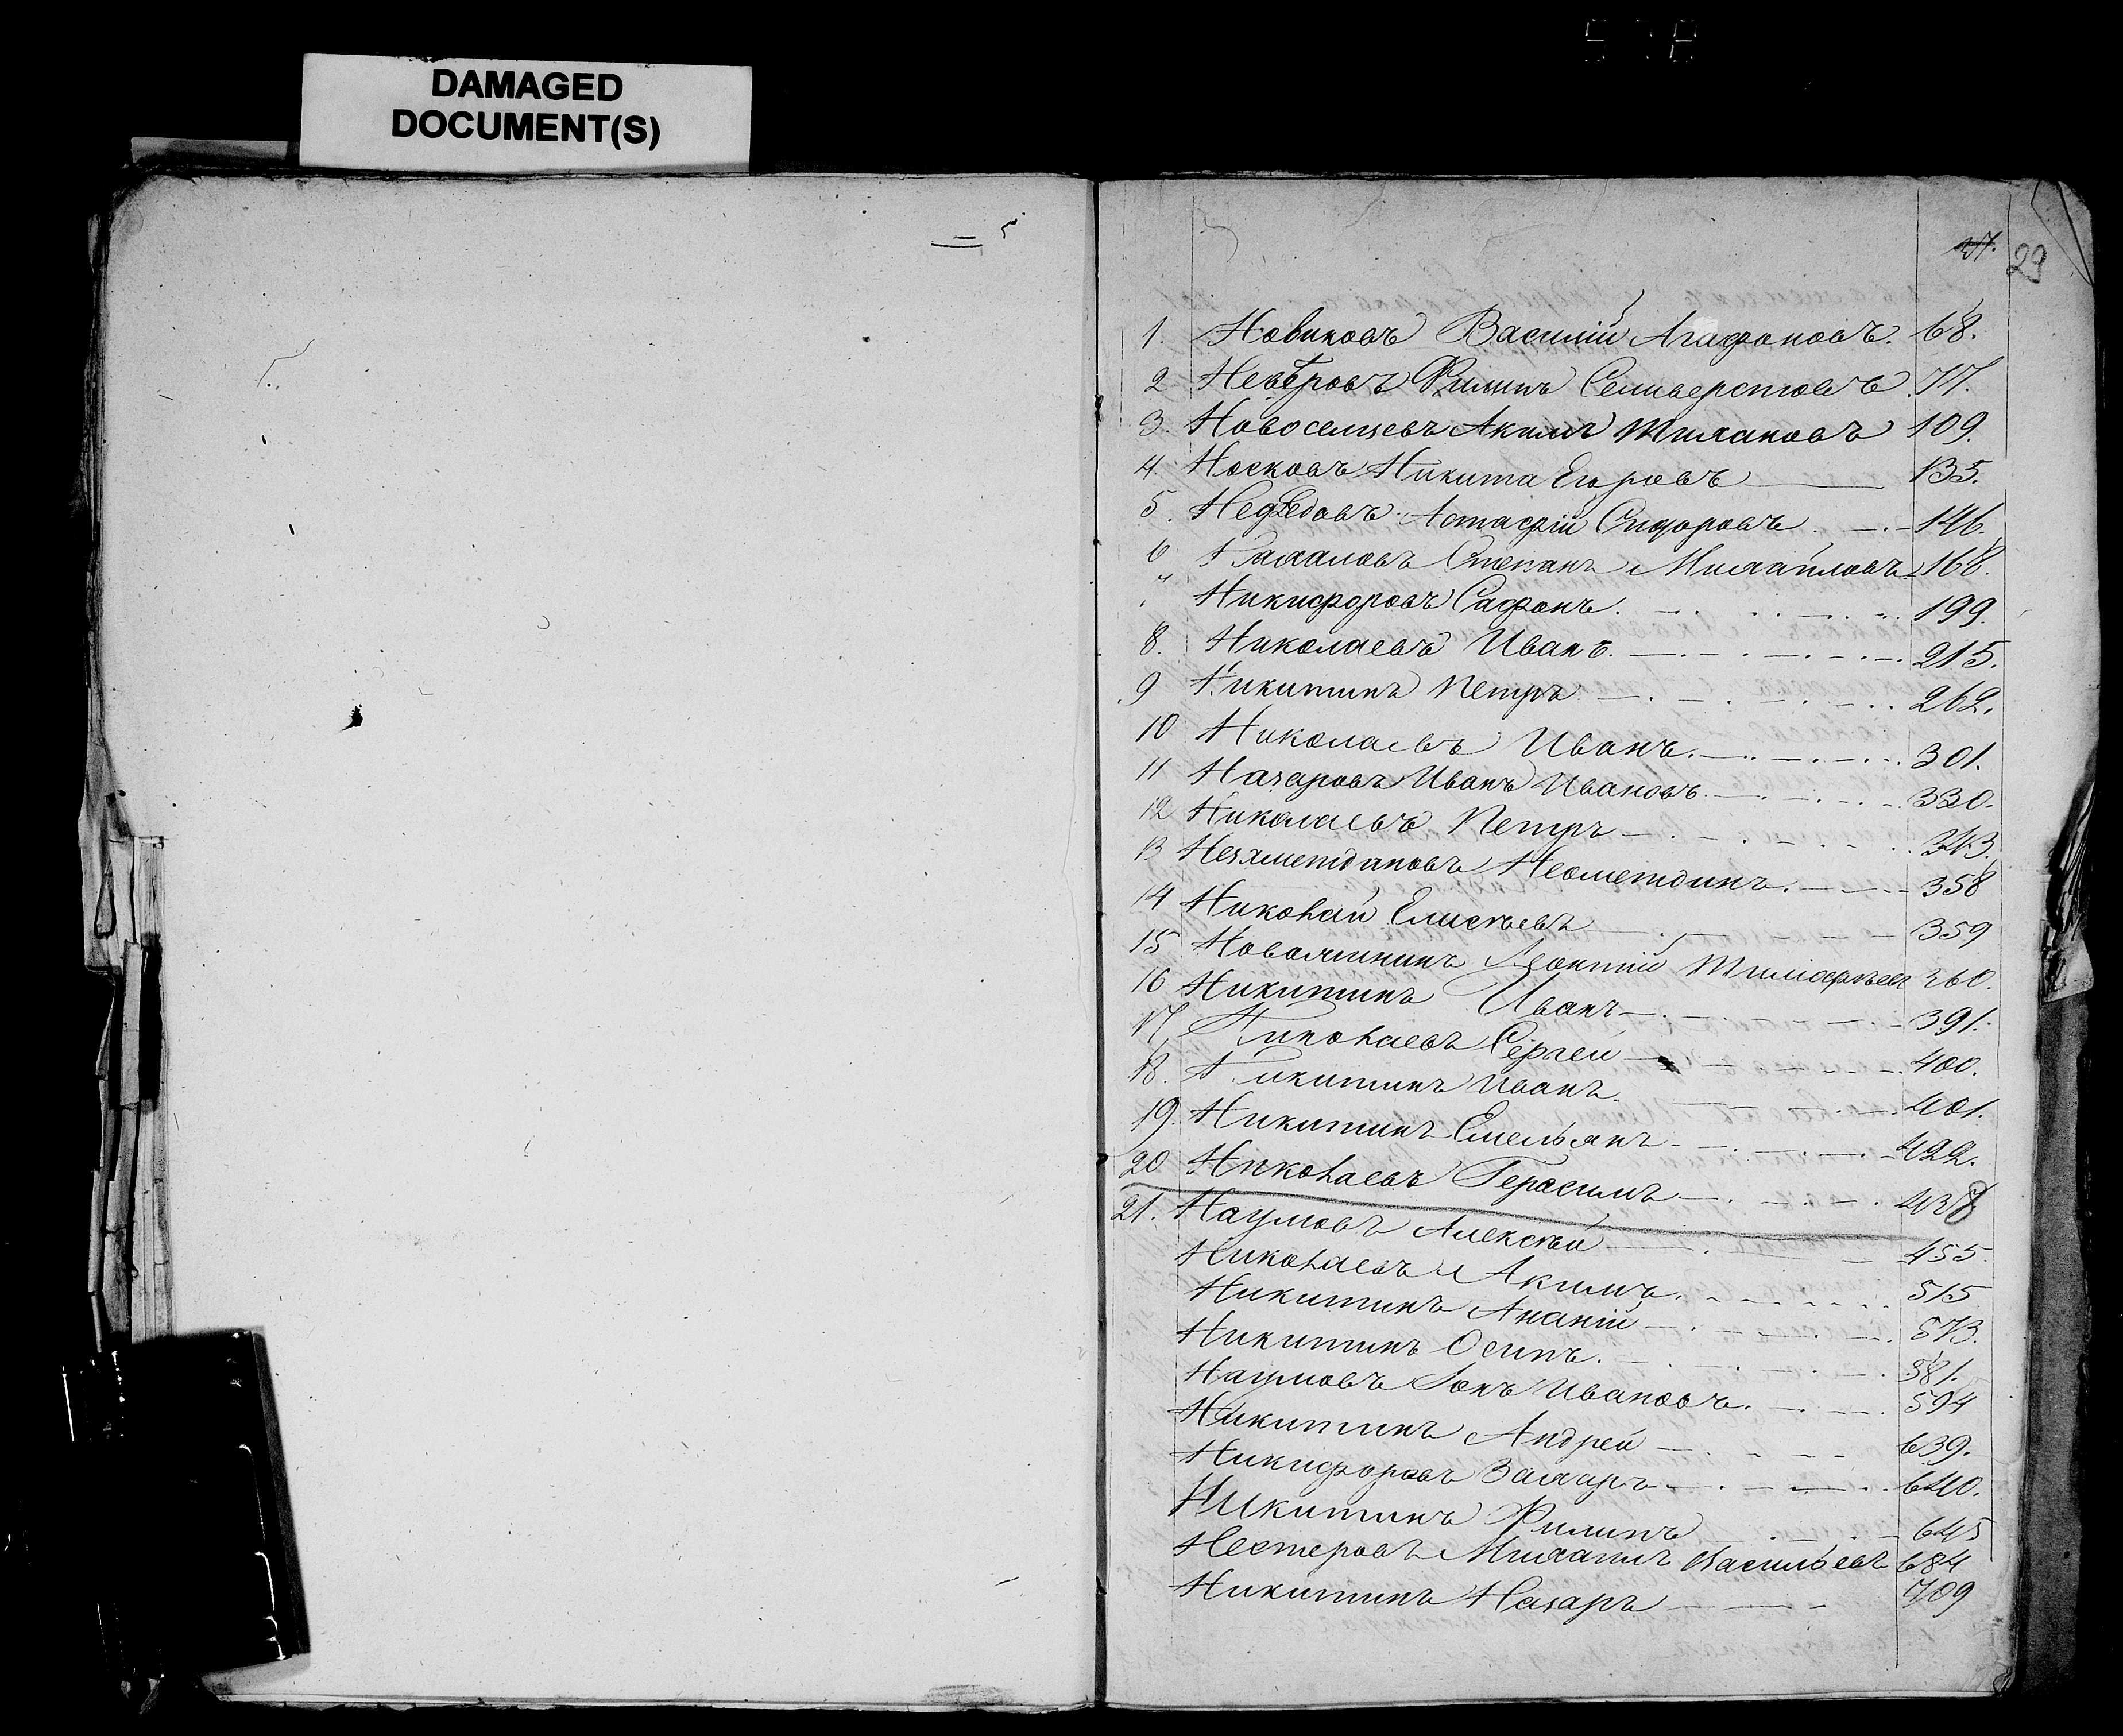 DAMAGED
DOCUMENT(S)
29
1. Новиковъ Василій Агафоновъ. 68.
2 Невѣровъ Филипъ Селиверстовъ. 77.
3. Новосельцевъ Акимъ 109.
4. Носковъ Никита Егоровъ 135.
5. Сидоровъ 146.
6 Степанъ Михайловъ 168.
" Никифоровъ Сафонъ. 199.
8. Николаевъ Иванъ. 215.
9 Никитинъ Петръ. 262.
10 Николаевъ Иванъ. 301.
11 Назаровъ Иванъ Ивановъ. 330.
12 Николаевъ Петръ 343.
13 358
14 Николай Елисѣевъ 359
15 Леонтій Тимофѣевъ 360.
16 Никитинъ Иванъ 391.
17 Николаевъ Сергей 400.
18. Никитинъ Иванъ. 401.
19. Никитинъ Емельянъ 422.
20 Николаевъ Герасимъ 437
21. Наумовъ Алексѣй 455.
Николаевъ Акимъ. 515
Никитинъ Ананій 573.
Никитинъ Осипъ. 581.
Наумовъ Іонъ Ивановъ. 594
Никитинъ Андрей 639.
Никифоровъ Захаръ 640.
Никитинъ Филипъ 645
Нестеровъ Михаилъ Васильевъ 684
Никитинъ Назаръ 709